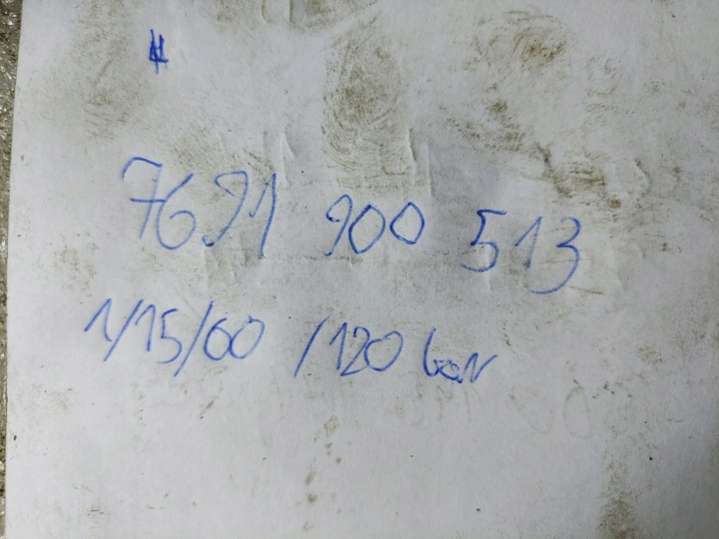 7691 900 513
1/15/60 /120 bar